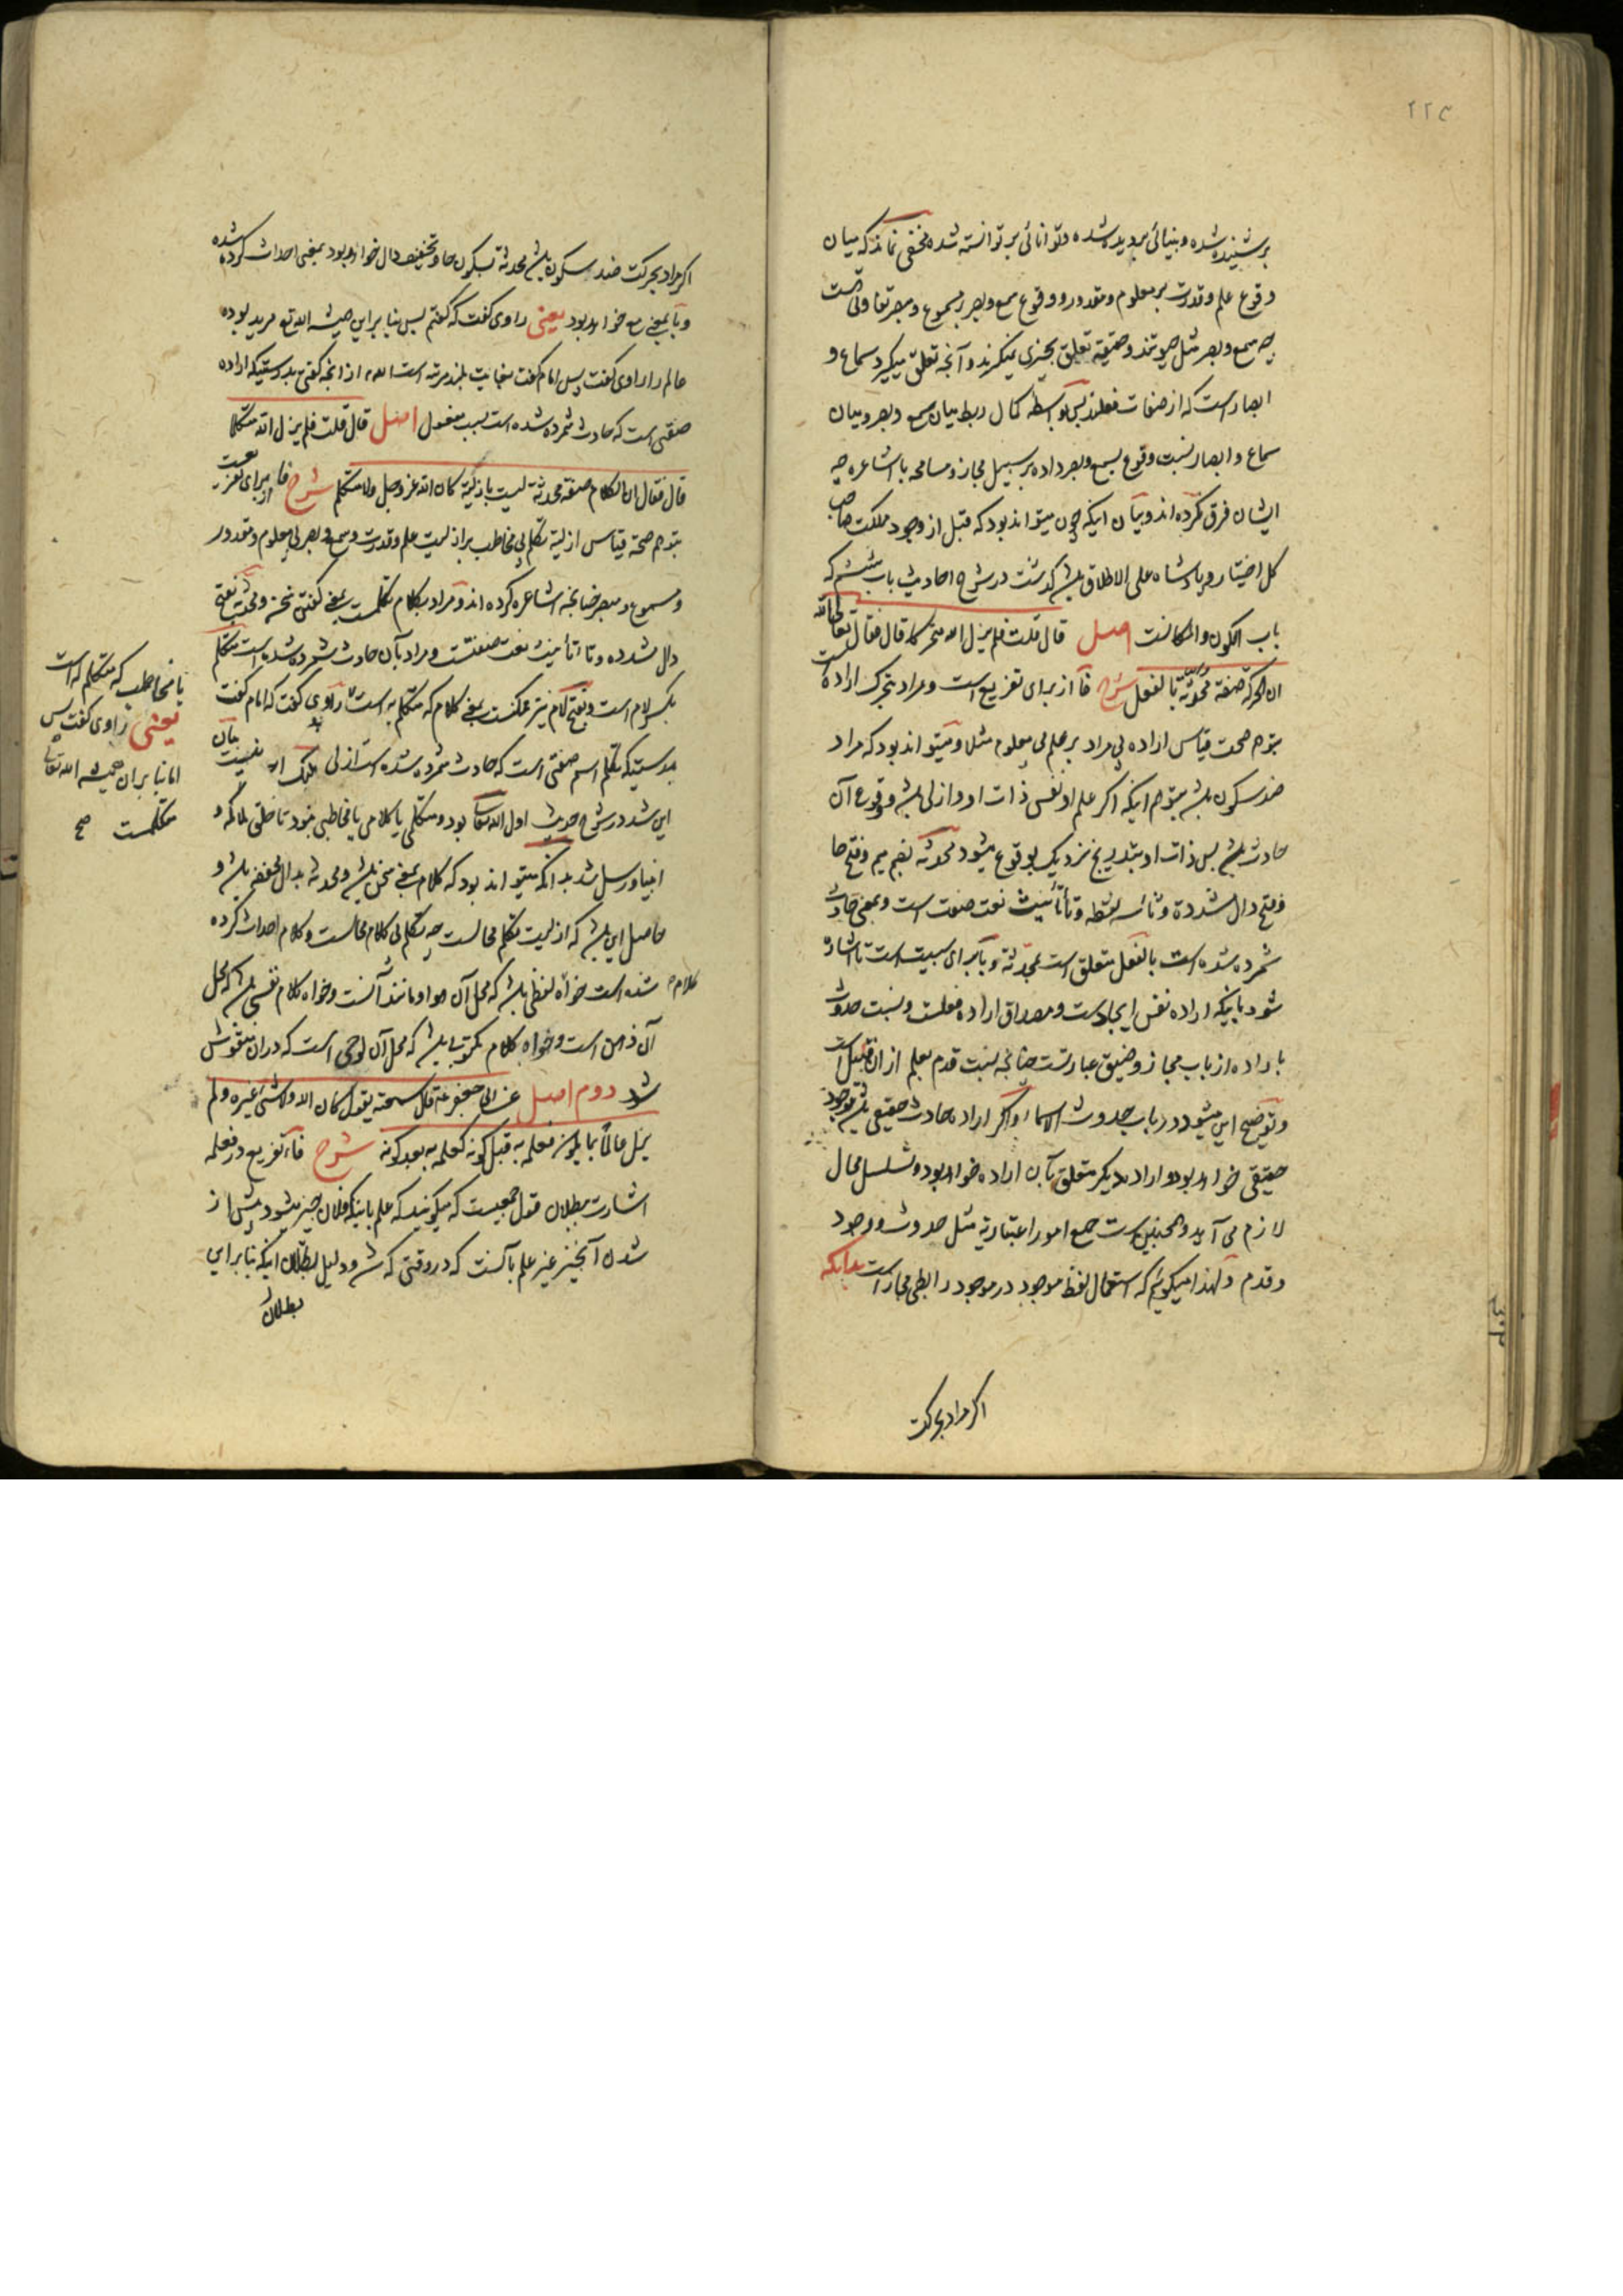 ۲۲۴
بر شنیده شده و بینائی بر دیده شده و توانائی بر توانسته شده مخفی نماند که میان
وقوع علم و قدرت بر معلوم و مقدور و وقوع سمع و بصر بر مسموع و مبصر تفاوتی هست
چه سمع و بصر مثل حیوتند و حقیقة تعلق بچیزی نمیگیرند و آنچه تعلق میگیرد سماع و
ابصار است که از صفات فعلند پس بواسطه کمال ربط میان سمع و بصر و میان
سماع و ابصار نسبت وقوع بسمع و بصر داده بر سبیل مجاز و مسامحه با اشاعره چه
ایشان فرق نکرده اند و بیان اینکه چون میتواند بود که قبل از وجود مملکت صاحب
کل اختیار و پادشاه علی الاطلاق باشد گذشت در شرح احادیث باب ششم که
باب الکون و المکانست اصل قال قلت فلم یزل الله متحرکا قال فقال تعالی الله
ان الحرکة صفة محدثة بالفعل شرح فا از برای تفریع است و مراد بتحرک اراده است
بتوهم صحت قیاس اراده بی مراد بر علم بی معلوم مثلا و میتواند بود که مراد
ضد سکون باشد بتوهم اینکه اگر علم او نفس ذات او و ازلی باشد و وقوع آن
حادث باشد پس ذات او بتدریج نزدیک بوقوع میشود محدثه بضم میم و فتح حا
و فتح دال مشدده و ثاء سه نقطه و تا تأنیث نعت صفت است و بمعنی حادث
شمرده شده است بالفعل متعلق است بمحدثة و با برای سببیت است تا اشاره
شود باینکه اراده نفس ایجاد است و مصداق اراده فعلست و نسبت حدوث
باراده از باب مجاز و ضیق عبارتست چنانچه نسبت قدم بعلم از ان قبیل است
و توضیح این میشود در باب حدوث الاسماء و اگر اراده حادث حقیقی باشد موجود
حقیقی خواهد بود و اراده دیگر متعلق بآن اراده خواهد بود و تسلسل محال
لازم می آید و همچنین است جمیع امور اعتباریه مثل حدوث و وجود
و قدم و لهذا میگوئیم که استعمال لفظ موجود در موجود رابطی مجاز است بدانکه
اگر مراد بحرکت
اگر مراد بحرکت ضد سکون باشد محدثة بسکون حا و تخفیف دال خواهد بود بمعنی احداث کرده شده
و با بمعنی مع خواهد بود یعنی راوی گفت که گفتم پس بنا بر این همیشه الله تع مرید بوده
عالم را راوی گفت پس امام گفت بغایت بلند مرتبه است الله از آنچه گفتی بدرستیکه اراده
صفتی است که حادث شمرده شده است بسبب مفعول اصل قال قلت فلم یزل الله متکلما
قال فقال ان الکلام صفة محدثة لیست بازلیة کان الله عز و جل و لا متکلم شرح فا از برای تفریعست
بتوهم صحة قیاس ازلیة تکلم بی مخاطب بر ازلیت علم و قدرت و سمع و بصر بی معلوم و مقدور
و مسموع و مبصر چنانچه اشاعره کرده اند و مراد بکلام تکلمست بمعنی گفتن سخن و محدثة بفتح
دال مشدده و تا تأنیث نعت صفتست و مراد بآن حادث شمرده شده است متکلم
بکسر لام است و بفتح لام نیز ممکنست بمعنی کلام که متکلم به است راوی گفت که امام گفت
بدرستیکه تکلم اسم صفتی است که حادث شمرده شده است ازلی نیست بیان
این شد در شرح حدیث اول الله تعالی بود و متکلمی یا کلامی یا مخاطبی نبود تا خلق ملائکه و
انبیا و رسل شد بدانکه میتواند بود که کلام بمعنی سخن باشد و محدثه بدال مخفف باشد و
حاصل این باشد که ازلیت تکلم محالست چه تکلم بی کلام محالست و کلام احداث کرده
شده است خواه کلام لفظی باشد که محل آن هوا و مانند آنست و خواه کلام نفسی باشد که محل
آن ذهن است و خواه کلام مکتوب باشد که محل آن لوحی است که در ان منقوش
شد دوم اصل عن ابی جعفر ع قال سمعته یقول کان الله و لا شیء غیره و لم
یزل عالما بما یکون فعلمه به قبل کونه کعلمه به بعد کونه شرح فاء تفریع در فعلمه
اشارت ببطلان قول جمعیست که میگویند که علم باینکه فلان چیز میشود پیش از
شدن آنچیز غیر علم بآنست که در وقتی که شد و دلیل بطلان اینکه بنا بر این
بطلان
یا مخاطب که متکلم له است
یعنی راوی گفت پس
اما بنا بر ان همیشه الله تعالی
متکلمست صح